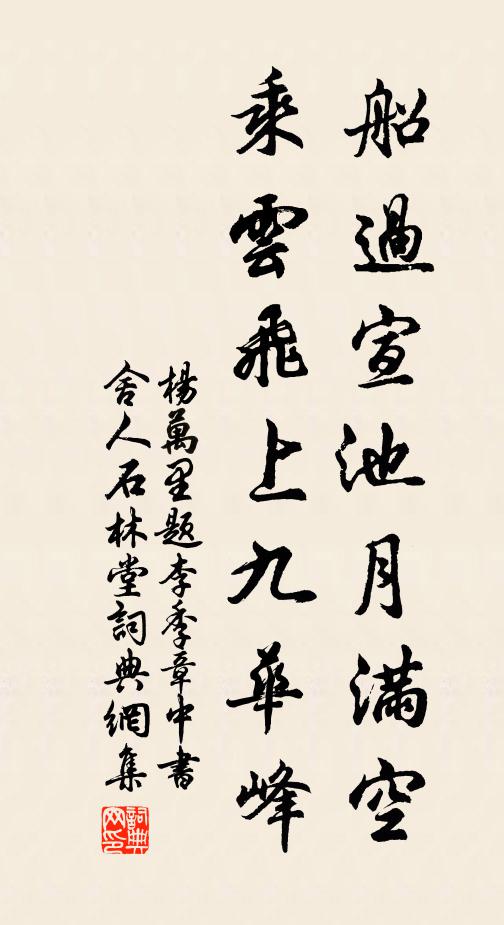 船過宣池月滿空
乘雲飛上九華峰
楊萬里題李季章中書
舍人石林堂詞典網集
詞典網印